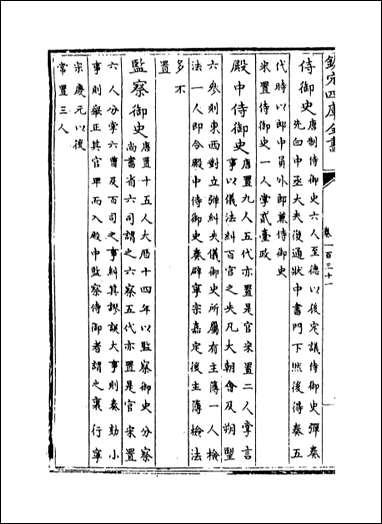 欽定四庫全書
卷一百三十一
侍御史 唐制侍御史六人至德以後定議侍御史彈奏
先白中丞大夫復過狀中書門下然後得奏五
代時以郎中員外郎兼侍御史
宋置侍御史一人掌貳臺政
殿中侍御史 唐置九人五代亦置是官宋置二人掌言
事以儀法糾百官之失凡大朝會及朔望
六參則東西對立彈糾失儀御史所屬有主簿一人檢
法一人即令殿中侍御史奏辟寧宗嘉定後主簿檢法
多不
置
監察御史 唐置十五人大厯十四年以監察御史分察
尚書省六司謂之六察五代亦置是官宋置
六人分掌六曹及百司之事糾其謬誤大事則奏劾小
事則舉正其官卑而入殿中監察侍御者謂之裏行寧
宗慶元以後
常置三人